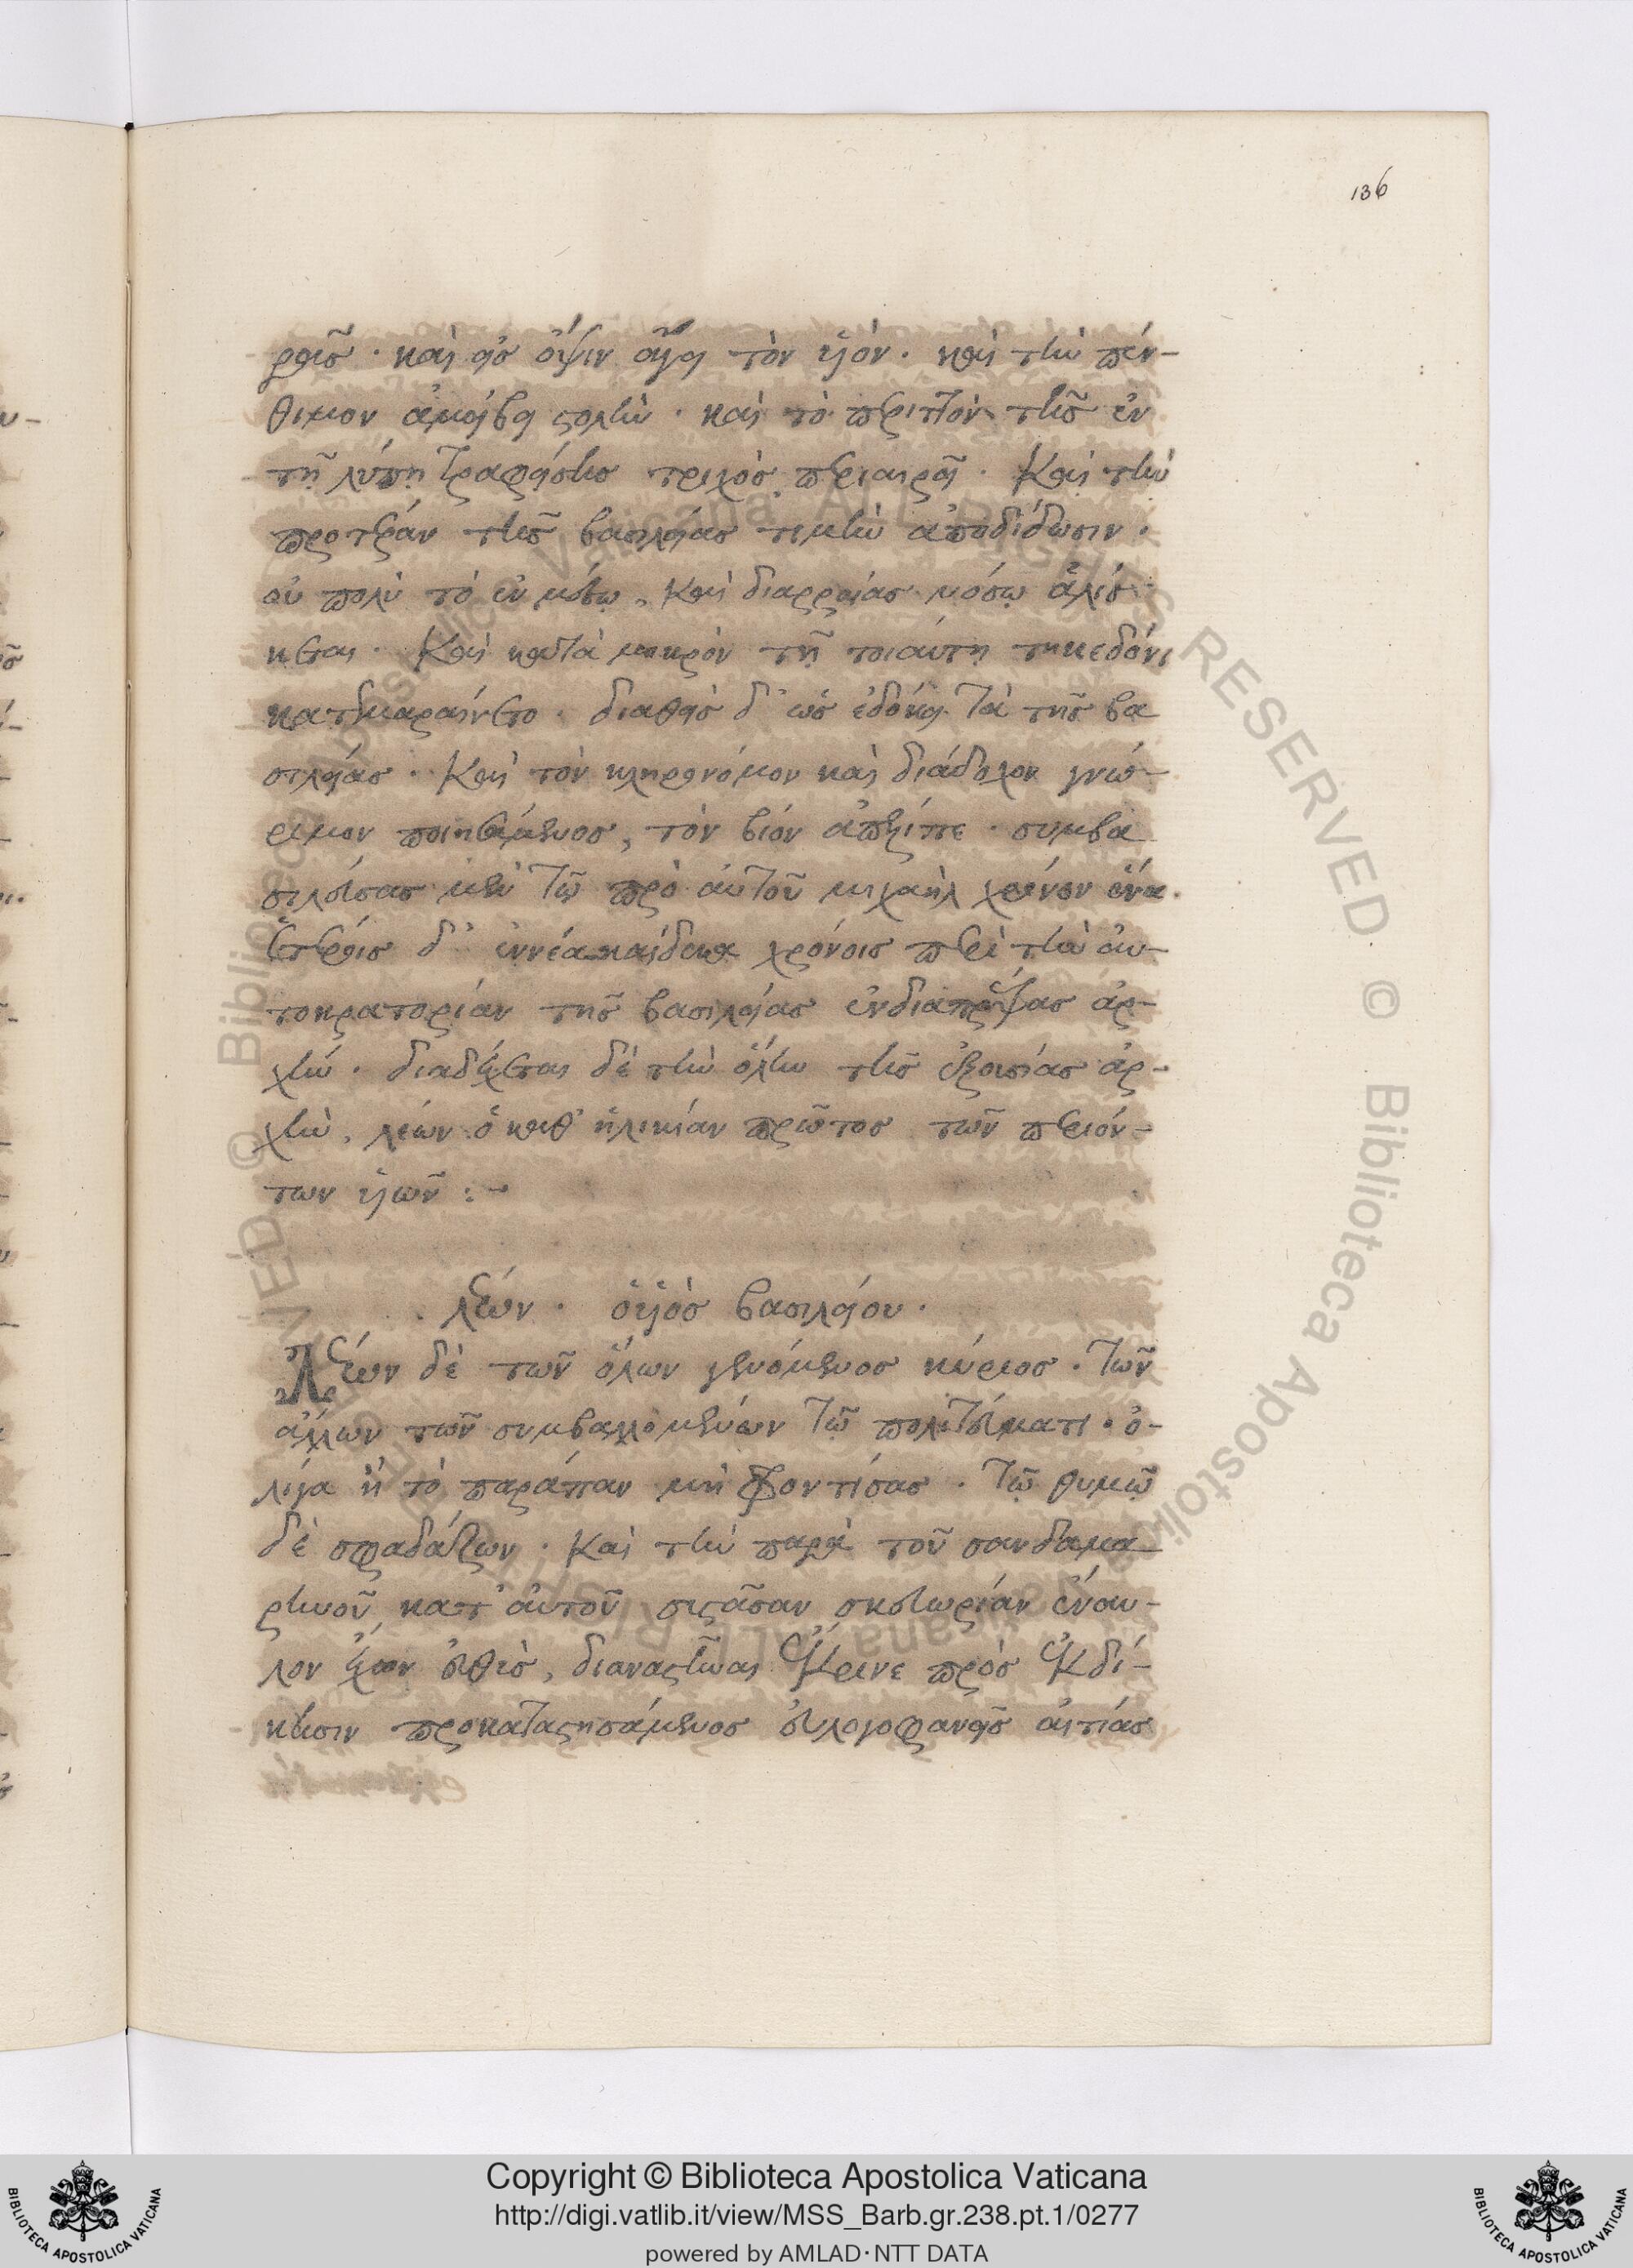 136
ρθεῖσ · καὶ εἰσ ὄψιν ἄγει τὸν υἱόν · καὶ τὴν πέν-
θιμον ἀμείβει στολὴν · καὶ τὸ περιττὸν τῆσ ἐν
τῇ λύπῃ τραφείσησ τριχὸσ περιαιρεῖ · Καὶ τὴν
προτέραν τῆσ βασιλείασ τιμὴν ἀποδίδωσιν ·
οὐ πολὺ τὸ ἐν μέσῳ, καὶ διαρροίασ νόσῳ ἁλίσ-
κεται · Καὶ κατὰ μικρὸν τῇ τοιαύτη τηκεδόνι
κατεμαραίνετο · διαθεὶσ δ' ὡσ ἐδόκει τὰ τῆσ βα
σιλείασ · Καὶ τὸν κληρονόμον καὶ διάδοχον γνώ-
ριμον ποιησάμενοσ, τὸν βίον ἀπέλιπε · συμβα
σιλεύσασ μὲν τῷ πρὸ αὐτοῦ μιχαὴλ χρόνον ἕνα ·
ἑτέροισ δ' ἐννέα καίδεκα χρόνοισ περὶ τὴν αὐ-
τοκρατορίαν τῆσ βασιλείασ ἐνδιαπρέψασ ἀρ-
χήν · διαδέχεται δὲ τὴν ὅλην τῆσ ἐξουσίασ ἀρ-
χὴν, λέων ὁ καθ' ἡλικίαν πρῶτοσ τῶν περιόν-
των υἱῶν : -
λέων · ὁ υἱὸσ βασιλείου ·
Λέων δὲ τῶν ὅλων γενόμενοσ κύριοσ · τῶν
ἄλλων τῶν συμβαλλομένων τῷ πολιτεύματι · ὀ-
λίγα ἢ τὸ παράπαν μὴ φροντίσασ · τῷ θυμῷ
δὲ σφαδάζων · καὶ τὴν παρὰ τοῦ σανδαμα
ρηνοῦ κατ' αὐτοῦ συστᾶσαν σκαιωρίαν ἔναυ-
λον ἔχων εὐθὺσ, διαναστῆναι ἔκρινε πρὸσ ἐκδί-
κησιν προκαταστησάμενοσ εὐλογοφανεῖσ αἰτίασ
Copyright © Biblioteca Apostolica Vaticana
http://digi.vatlib.it/view/MSS_Barb.gr.238.pt.1/0277
powered by AMLAD·NTT DATA